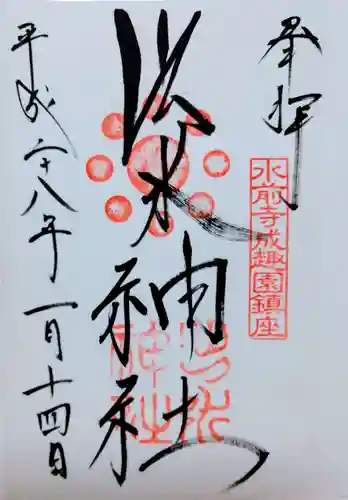 奉拝
水前寺成趣園鎮座
出水神社
出水
神社
平成二十八年一月十四日